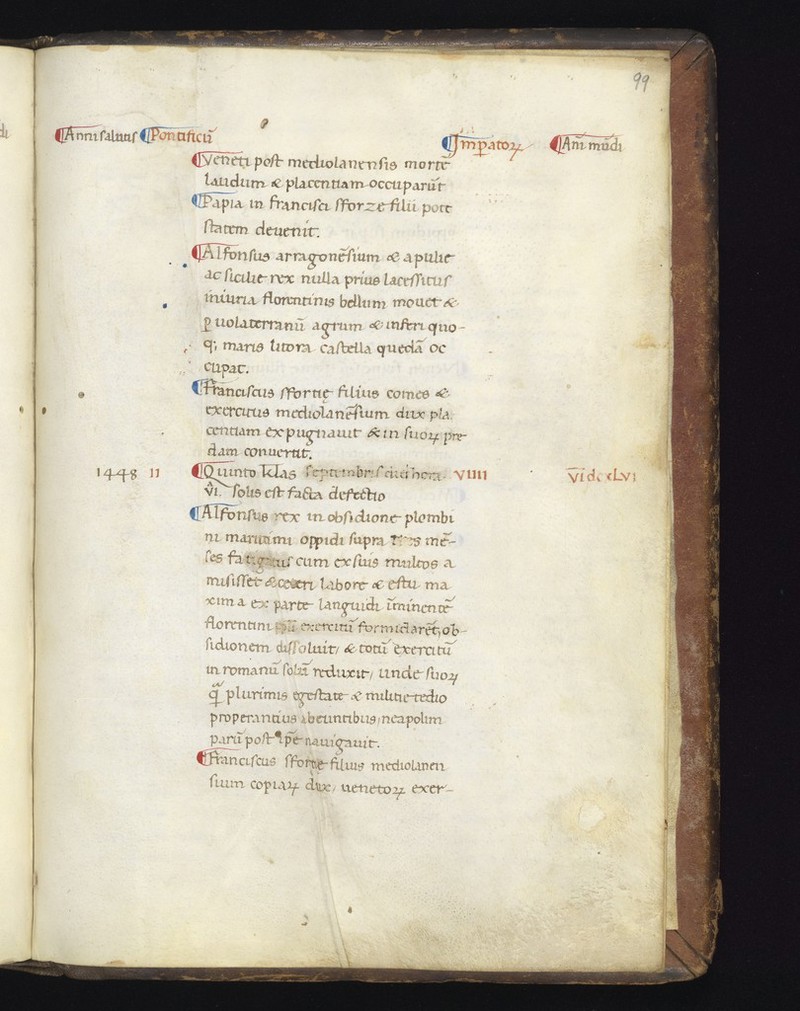 99
¶Anni salutis ¶Pontificū ¶Imp̄atoꝝ ¶Ani mūdi
¶Veneti post mediolanensis mortē
laudum & placentiam occuparūt
¶Papia in francisci sforze filii pote
statem devenit.
¶Alfonsus arragonēsium & apulie
ac sicilie rex nulla prius lacessitus
iniuria florentinis bellum movet &
ꝑ uolaterranū agrum & inferi quo-
q; maris litora castella quedā oc
cupat.
¶Franciscus sfortie filius comes &
exercitus mediolanēsium dux pla
centiam expugnauit & in suoꝝ pre
dam conuertit.
1448 11 ¶Quinto klas septembris hora VIIII V̄I dcxLVI
v̄i. solis est facta defectio
¶Alfonsus rex in obsidione plombi
ni maritimi oppidi supra mē-
ses fatigatus cum ex suis multos a
misisset & ceteri labore & estu ma
xima ex parte languidi īminentē
florentini exercitū formidarēt, ob-
sidionem dissoluit, & totū exercitū
in romanū solū reduxit, unde suoꝝ
q̄ plurimis egestate & militie tedio
properantius abeuntibus, neapolim
parū post ip̄e nauigauit.
¶Franciscus sfortie filius mediolanen
sium copiaꝝ dux, uenetoꝝ exer-